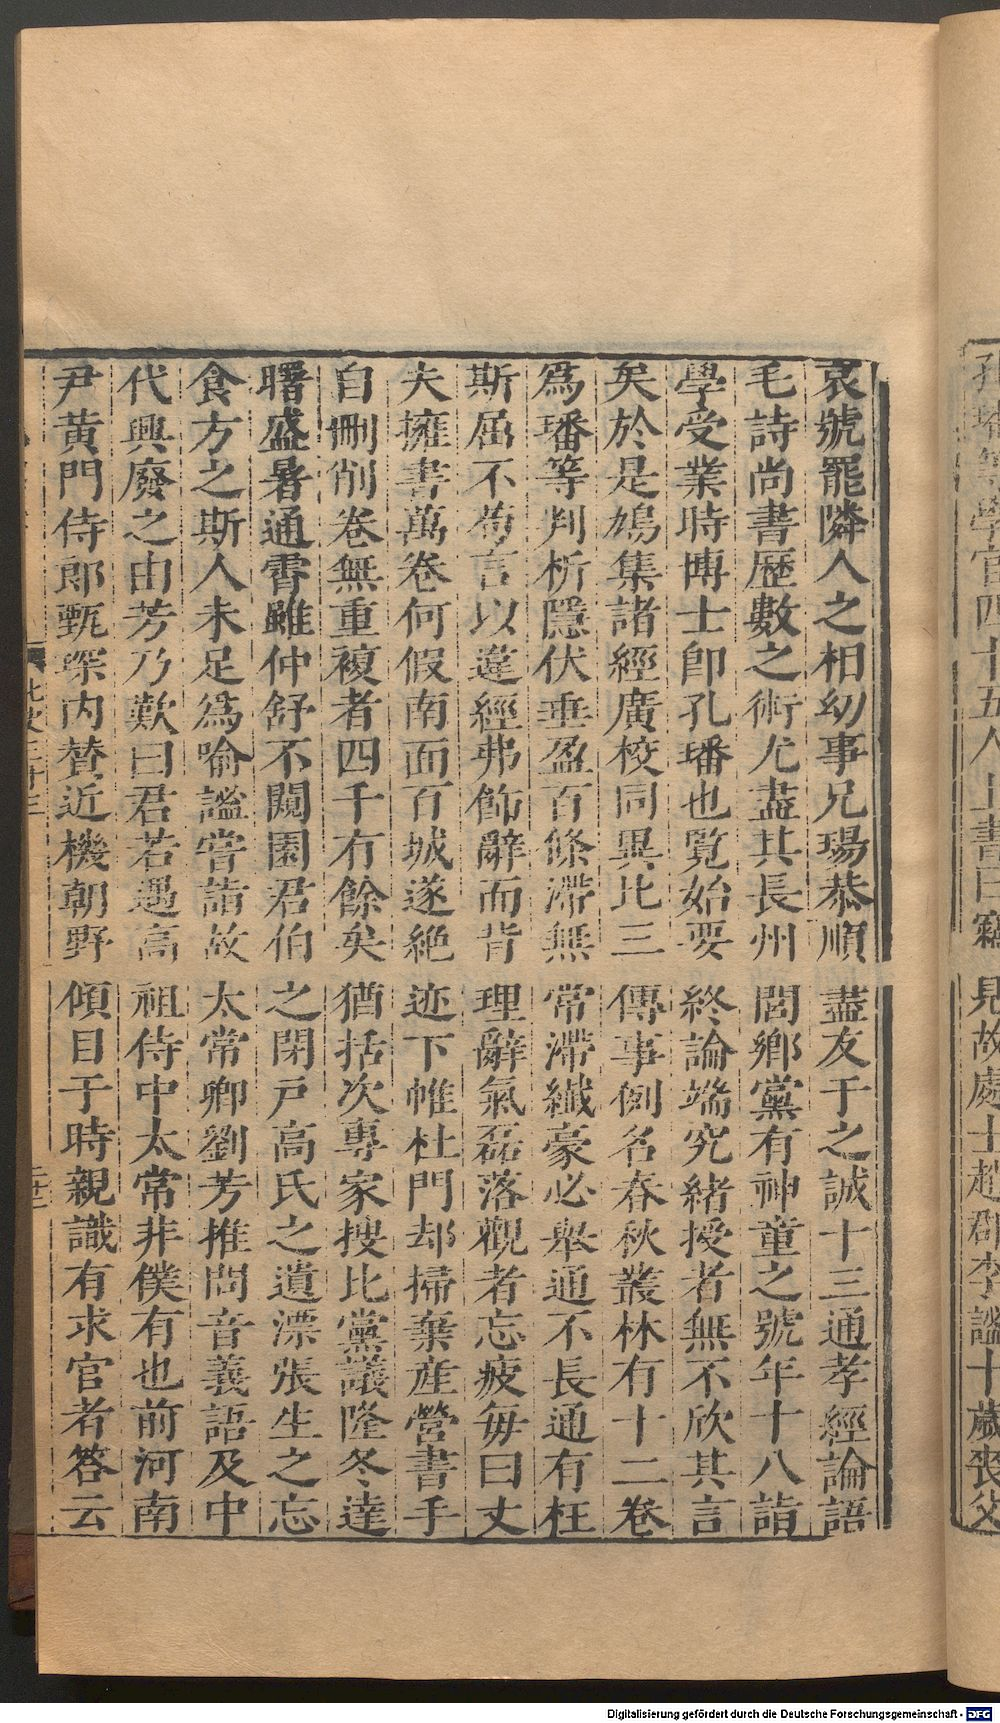 孔璠等學官四十五人上書曰竊見故處士趙郡李謐十歲喪父
哀號罷隣人之相幼事兄瑒恭順盡友于之誠十三通孝經論語
毛詩尚書歷數之術尤盡其長州閭鄉黨有神童之號年十八詣
學受業時博士即孔璠也覽始要終論端究緒授者無不欣其言
矣於是鳩集諸經廣校同異比三傳事例名春秋叢林有十二卷
爲璠等判析隱伏垂盈百條滯無常滯纖豪必舉通不長通有枉
斯屈不苟言以違經弗飾辭而背理辭氣磊落觀者忘疲每曰丈
夫擁書萬卷何假南面百城遂絶迹下帷杜門却掃棄産營書手
自刪削卷無重複者四千有餘矣猶括次專家搜比黨議隆冬達
曙盛暑通霄雖仲舒不闚園君伯之閉戸高氏之遺漂張生之忘
食方之斯人未足爲喻謐嘗詣故太常卿劉芳推問音義語及中
代興廢之由芳乃歎曰君若遇高祖侍中太常非僕有也前河南
尹黃門侍郎甄琛内賛近機朝野傾目于時親識有求官者答云
北史三十三
Digitalisierung gefördert durch die Deutsche Forschungsgemeinschaft - DFG